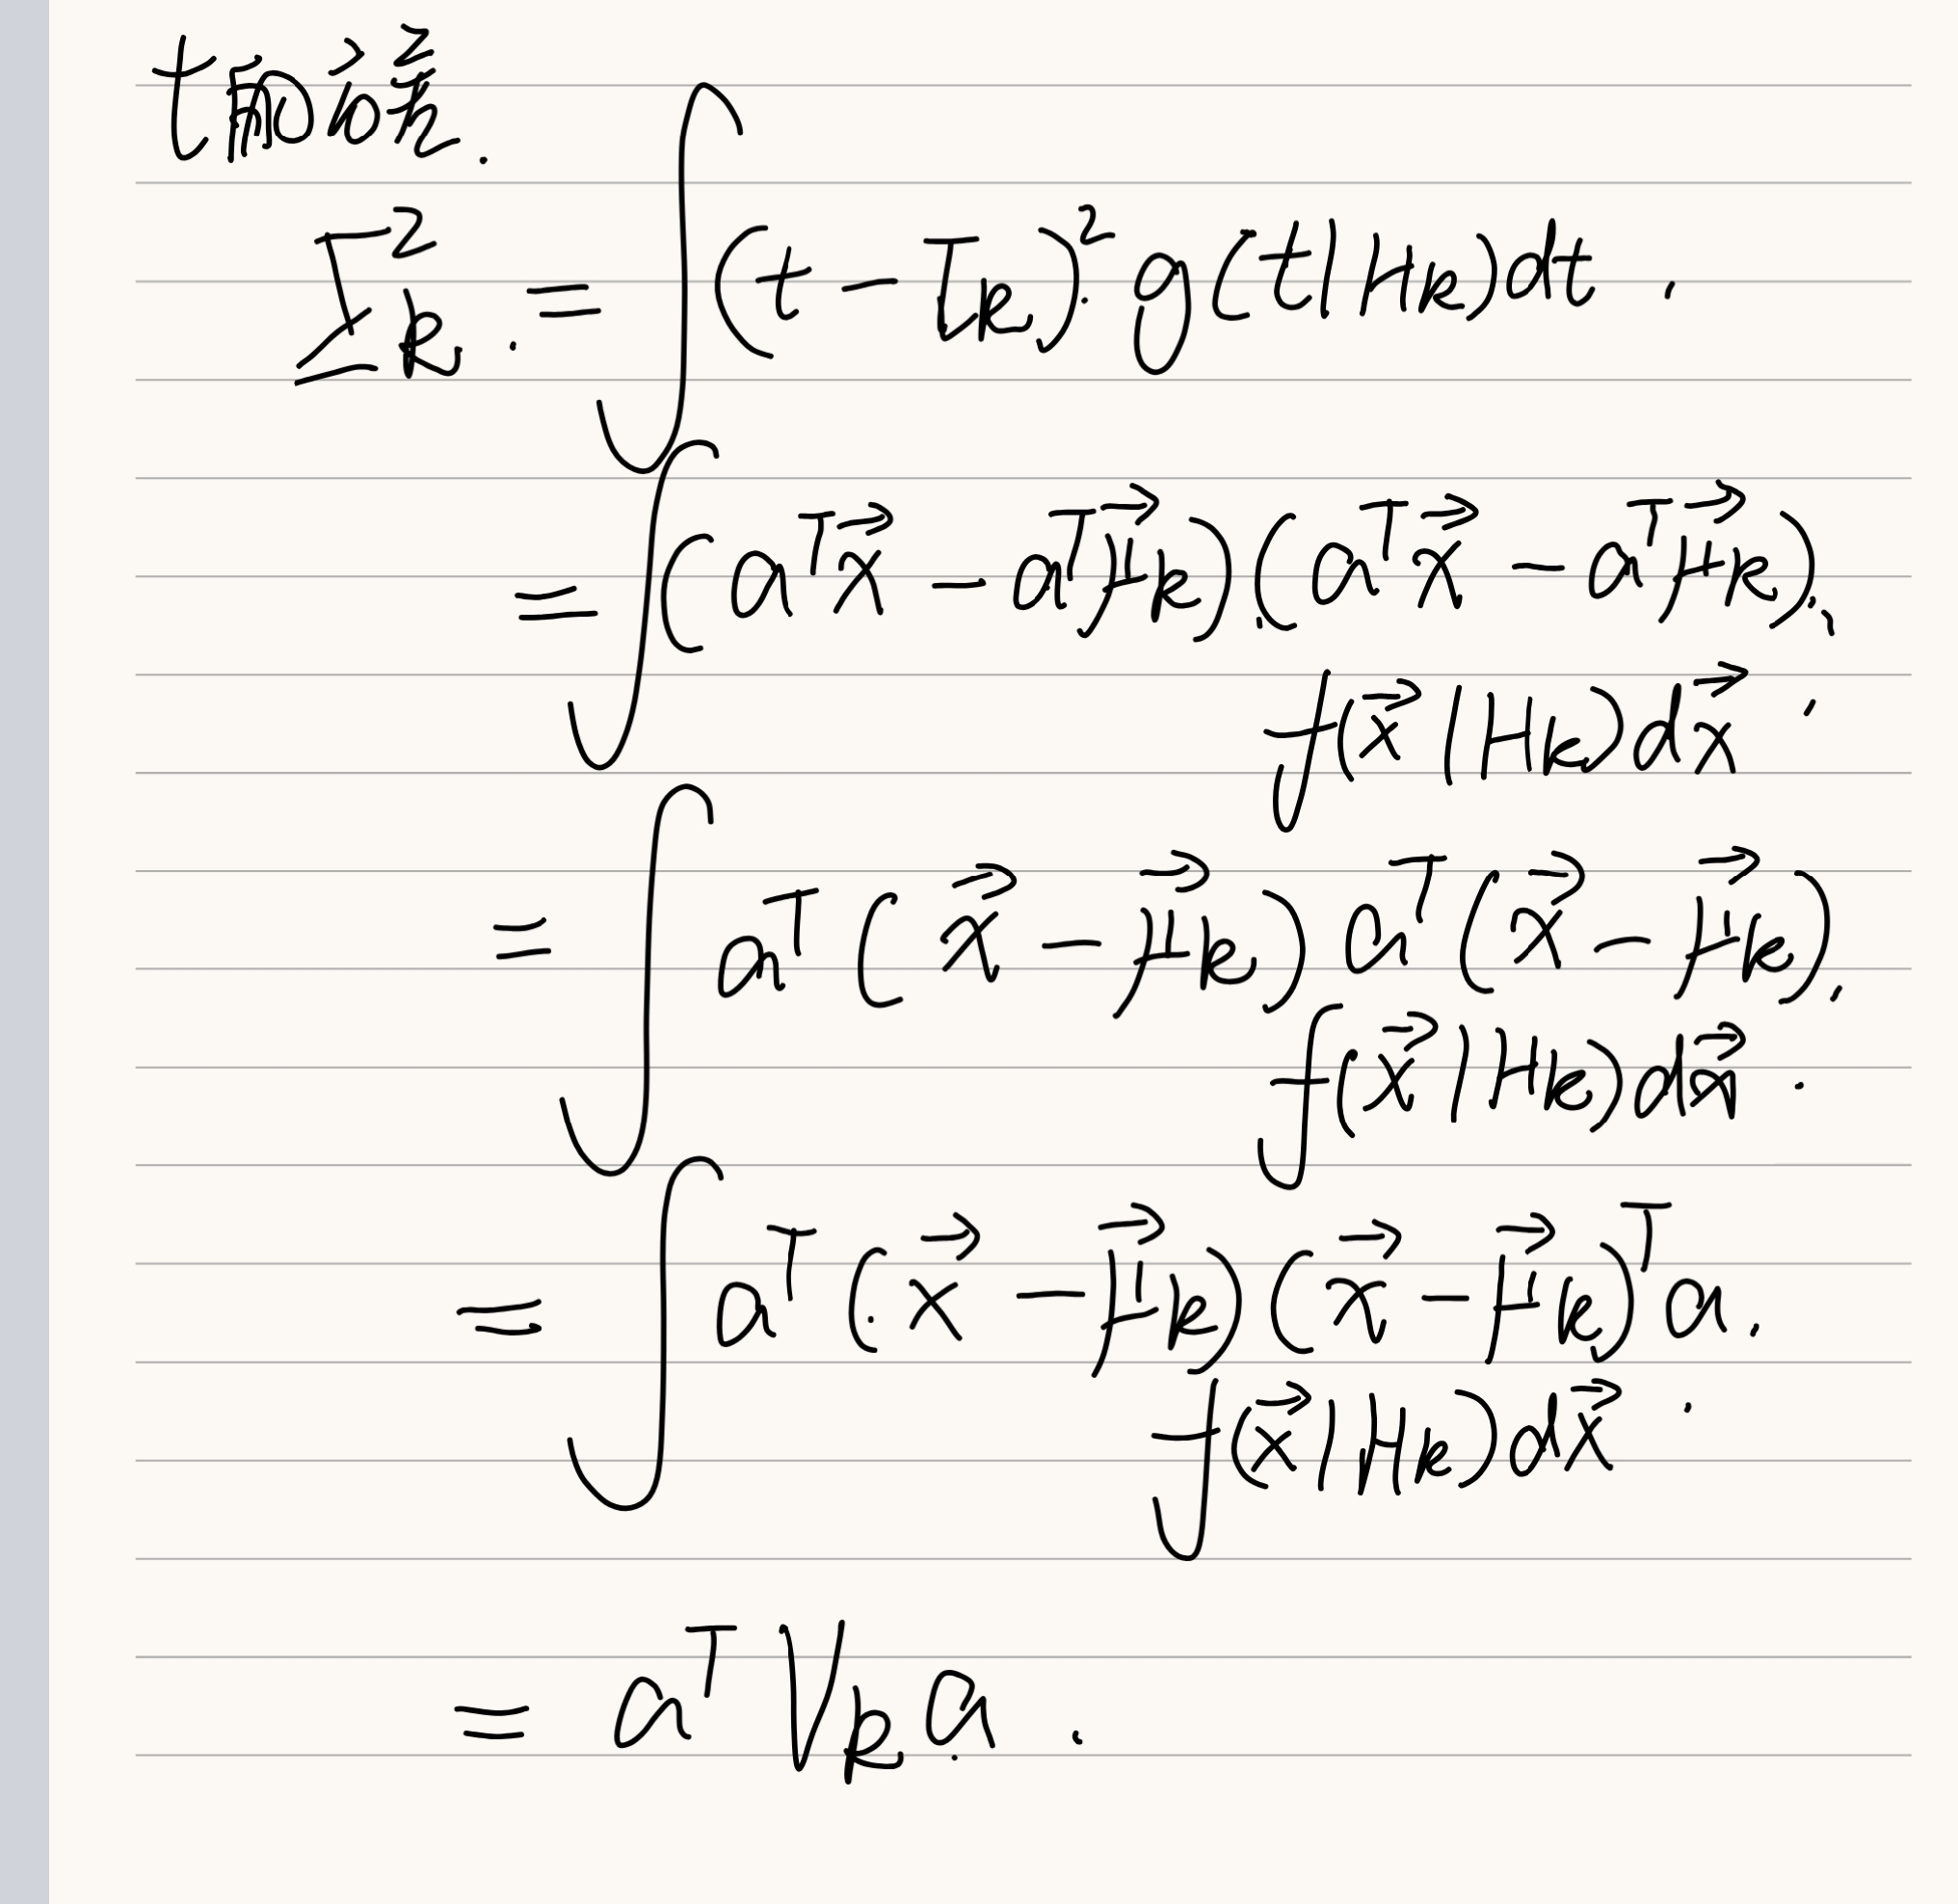 t的方差.
Σ²k. = ∫(t − τk)². g(t|Hk)dt.
= ∫(aᵀx⃗ − aᵀμ⃗k).(aᵀx⃗ − aᵀμ⃗k).
f(x⃗|Hk)dx⃗.
= ∫ aᵀ(x⃗ − μ⃗k) aᵀ(x⃗ − μ⃗k).
f(x⃗|Hk)dx⃗.
= ∫ aᵀ(x⃗ − μ⃗k)(x⃗ − μ⃗k)ᵀa.
f(x⃗|Hk)dx⃗.
= aᵀVka.